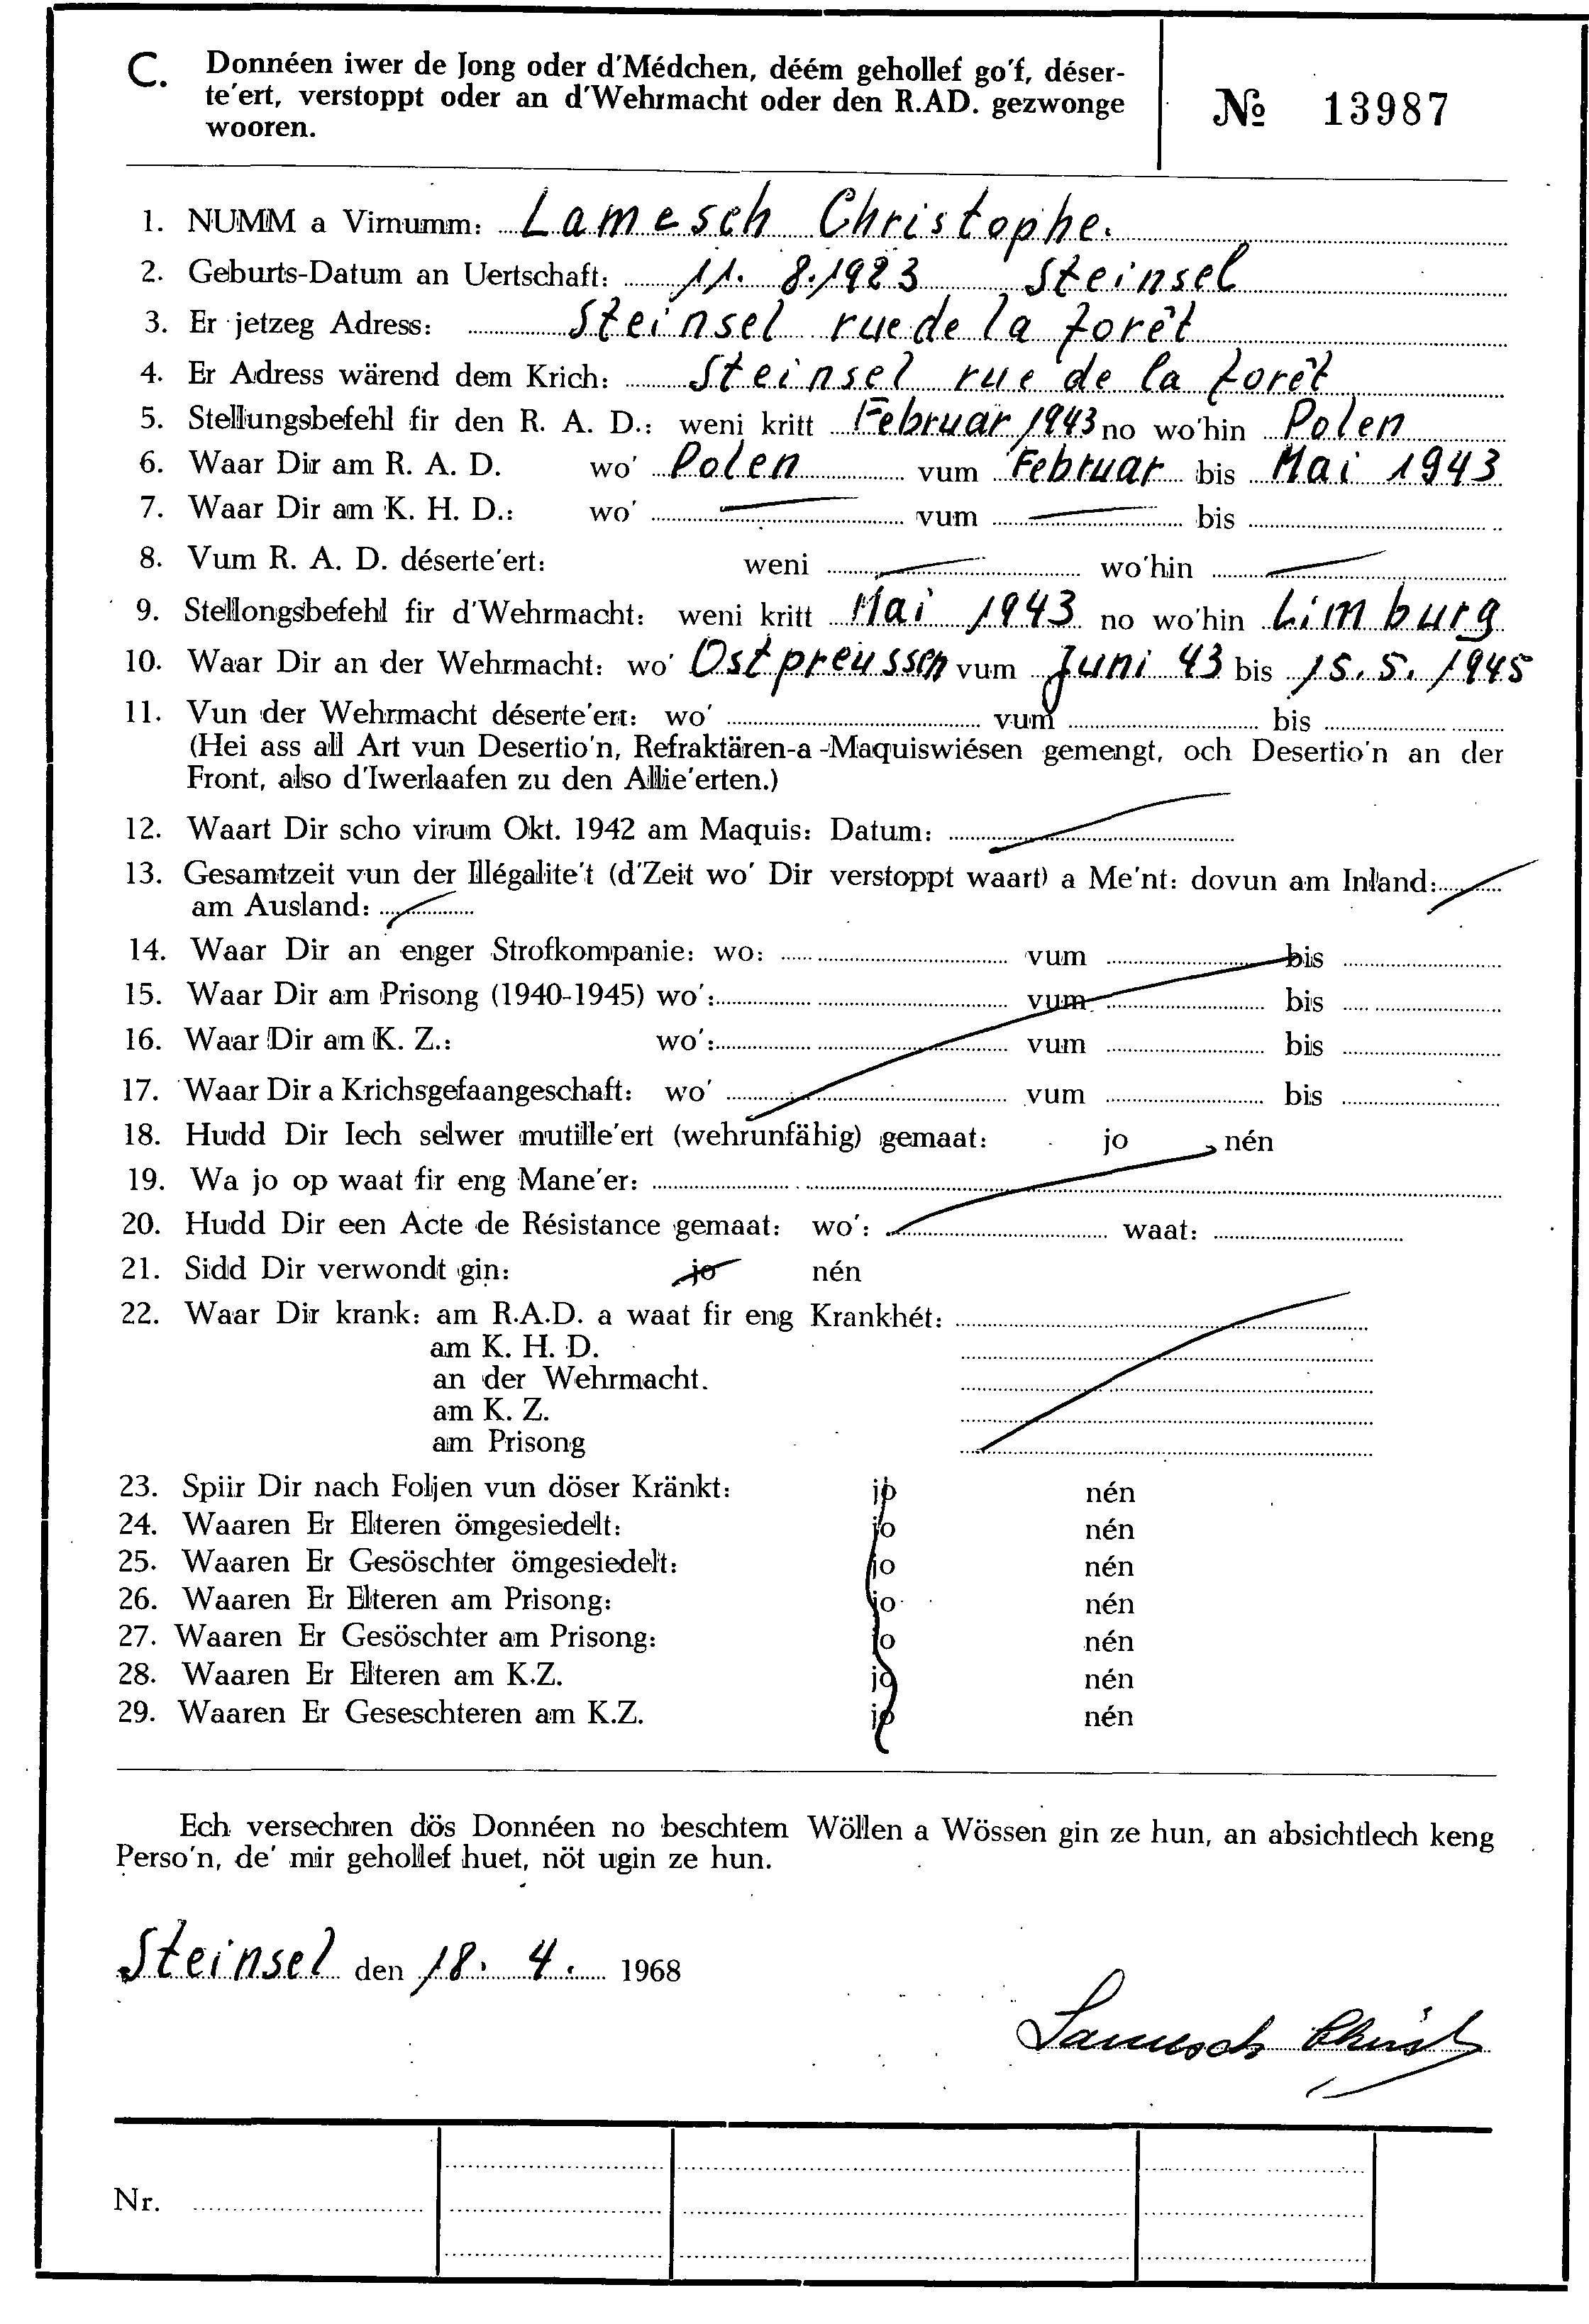 C. Donnéen iwer de Jong oder d'Médchen, déém gehollef go'f, déser-
te'ert, verstoppt oder an d'Wehrmacht oder den R.AD. gezwonge
wooren.
№ 13987
1. NUMM a Virnumm: Lamesch Christophe.
2. Geburts-Datum an Uertschaft: 11. 8. 1923 Steinsel
3. Er jetzeg Adress: Steinsel rue de la forêt
4. Er Adress wärend dem Krich: Steinsel rue de la forêt
5. Stellungsbefehl fir den R. A. D.: weni kritt Februar 1943 no wo'hin Polen
6. Waar Dir am R. A. D. wo' Polen vum Februar bis Mai 1943
7. Waar Dir am K. H. D.: wo' vum bis
8. Vum R. A. D. déserte'ert: weni wo'hin
9. Stellongsbefehl fir d'Wehrmacht: weni kritt Mai 1943 no wo'hin Limburg
10. Waar Dir an der Wehrmacht: wo' Ostpreussen vum Juni 43 bis 15. 5. 1945
11. Vun der Wehrmacht déserte'ert: wo' vum bis
(Hei ass all Art vun Desertio'n, Refraktären-a-Maquiswiésen gemengt, och Desertio'n an der
Front, also d'Iwerlaafen zu den Allie'erten.)
12. Waart Dir scho virum Okt. 1942 am Maquis: Datum:
13. Gesamtzeit vun der Illégalite't (d'Zeit wo' Dir verstoppt waart) a Me'nt: dovun am Inland:
am Ausland:
14. Waar Dir an enger Strofkompanie: wo: vum bis
15. Waar Dir am Prisong (1940-1945) wo': vum bis
16. Waar Dir am K. Z.: wo': vum bis
17. Waar Dir a Krichsgefaangeschaft: wo' vum bis
18. Hudd Dir Iech selwer mutille'ert (wehrunfähig) gemaat: jo nén
19. Wa jo op waat fir eng Mane'er:
20. Hudd Dir een Acte de Résistance gemaat: wo': waat:
21. Sidd Dir verwondt gin: jo nén
22. Waar Dir krank: am R.A.D. a waat fir eng Krankhét:
am K. H. D.
an der Wehrmacht.
am K. Z.
am Prisong
23. Spiir Dir nach Foljen vun döser Kränkt: jo nén
24. Waaren Er Elteren ömgesiedelt: jo nén
25. Waaren Er Gesöschter ömgesiedelt: jo nén
26. Waaren Er Elteren am Prisong: jo nén
27. Waaren Er Gesöschter am Prisong: jo nén
28. Waaren Er Elteren am K.Z. jo nén
29. Waaren Er Geseschteren am K.Z. jo nén
Ech versechren dös Donnéen no beschtem Wöllen a Wössen gin ze hun, an absichtlech keng
Perso'n, de' mir gehollef huet, nöt ugin ze hun.
Steinsel den 18. 4. 1968
Lamesch Christ
Nr.